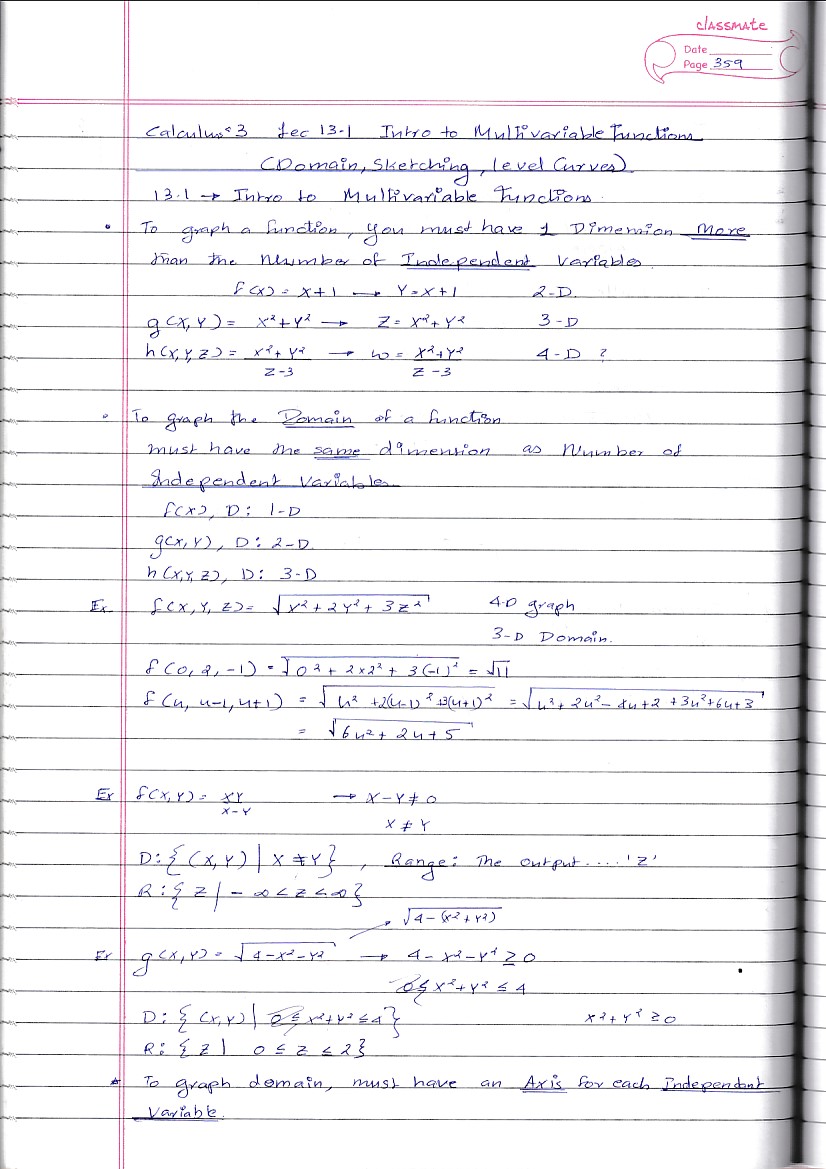 classmate
Date
Page 359
Calculus 3 Lec 13.1 Intro to Multivariable Functions
(Domain, Sketching, Level Curves)
13.1 → Intro to Multivariable Functions.
• To graph a function, you must have 1 Dimension More
than the Number of Independent Variables.
f(x) = x+1 → Y = x+1 2-D.
g(x,y) = x²+y² → z = x²+y² 3-D
h(x,y,z) = (x²+y²)/(z-3) → w = (x²+y²)/(z-3) 4-D ?
• To graph the Domain of a function
must have the same dimention as Number of
Independent Variables
f(x), D: 1-D
g(x,y), D: 2-D.
h(x,y,z), D: 3-D
Ex f(x,y,z) = √(x²+2y²+3z²) 4-D graph
3-D Domain.
f(0,2,-1) = √(0²+2×2²+3(-1)²) = √11
f(u,u-1,u+1) = √(u²+2(u-1)²+3(u+1)²) = √(u²+2u²-4u+2+3u²+6u+3)
= √(6u²+2u+5)
Ex f(x,y) = xy/(x-y) → x-y≠0
x≠y
D:{(x,y) | x≠y}, Range: The output....'z'
R:{z | -∞<z<∞}
√(4-(x²+y²))
Ex g(x,y) = √(4-x²-y²) → 4-x²-y² ≥ 0
0≤ x²+y² ≤ 4
D: {(x,y) | 0≤ x²+y² ≤ 4} x²+y² ≥ 0
R: {z | 0 ≤ z ≤ 2}
* To graph domain, must have an Axis for each Independent
Variable.